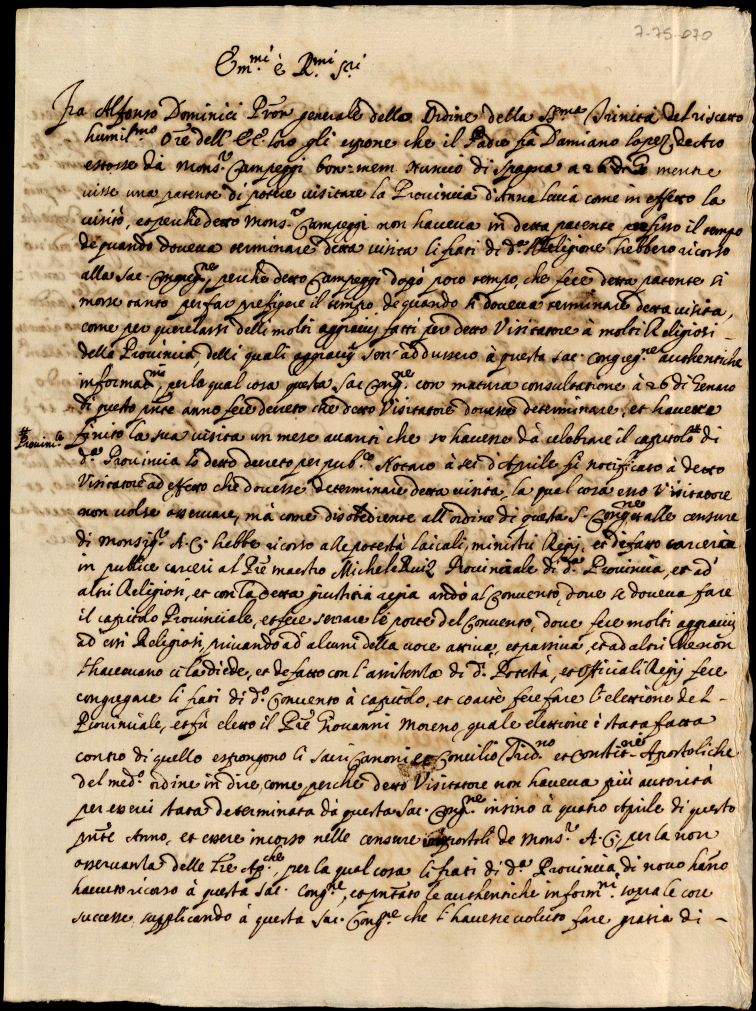 7-75-070
Em.mi è R.mi Sri
Fra Alfonso Dominici Pron generale dello Ordine della SS.ma Trinità del riscatto
humil.mo Ore dell'EE. loro gli espone che il Padre fra Damiano lopez, de Aro
estosse da Mons.r Campeggi bon. mem. Nuncio di Spagna a 26 di mentre
visse una patente di potere visitare la Provincia d'Anna lucia come in effetto la
visitò, et perche detto Mons.r Campeggi non haveva in detta patente prefisso il tempo
de quando doveva terminare detta visita li frati di d.a Religione hebbero ricorso
alla Sac. Congreg.ne, perche detto Campeggi dopò poco tempo, che fece detta patente si
morse tanto per far prefigere il tempo de quando si doveva terminare detta visita,
come per querelarsi delli molti aggravij fatti per detto Visitatore à molti Religiosi
della Provincia, delli quali aggravij son' addussero à questa Sac. Congreg.ne authentiche
informat.ni, per la qual cosa questa Sac. Cong.ne con matura consultatione à 26 di Genaro
di questo pnte anno fece decreto che detto Visitatore dovesse determinare, et havesse
finito la sua visita un mese avanti che se havesse dà celebrare il capitolo # di
# Provincle
d.a Provincia lo detto decreto per pub.co Notaro à sei d'Aprile fù notificato à detto
Visitatore ad effetto che dovesse determinare detta visita, la qual cosa esso Visitatore
non volse osservare, mà come disobediente all'ordine di questa S. Cong.ne et alle censure
di Monsig.r A. C. hebbe ricorso alle potestà laicali, ministri Regij, et de fatto carcerò
in publice carceri al Pre maestro Michele Ruiz Provinciale di d.a Provincia, et ad
altri Religiosi, et con la detta giustitia regia andò al Convento, dove se doveva fare
il capitolo Provinciale, et fece serrare le porte del Convento, dove fece molti aggravij
ad essi Religiosi, privando ad alcuni della voce attiva, et passiva, et ad altri che non
l'havevano ci la diede, et de fatto con l'assistenza di d.a Potestà, et Officiali Regij fece
congregare li frati di d.o Convento à capitolo, et coacte fece fare l'elettione del
Provinciale, et fù eletto il Pre Giovanni Moreno, quale elettione è stata fatta
contro di quello espongono li sacri Canoni et Concilio Trid.no et Constit.ni Apostoliche
del med.o ordine in dire, come perche detto Visitatore non haveva più autorità
per esserci stata determinata dà questa Sac. Cong.ne insino à quatro Aprile di questo
pnte Anno, et essere incorso nelle censure apostoli de Mons.r A. C. per la non
osservanza delle lre Ap.che, per la qual cosa li frati di d.a Provincia di novo hano
havuto ricorso à questa Sac. Cong.ne, et pntato le authentiche inform.ni sopra le cose
successe supplicando à questa Sac. Cong.ne che l'havesse voluto fare gratia di